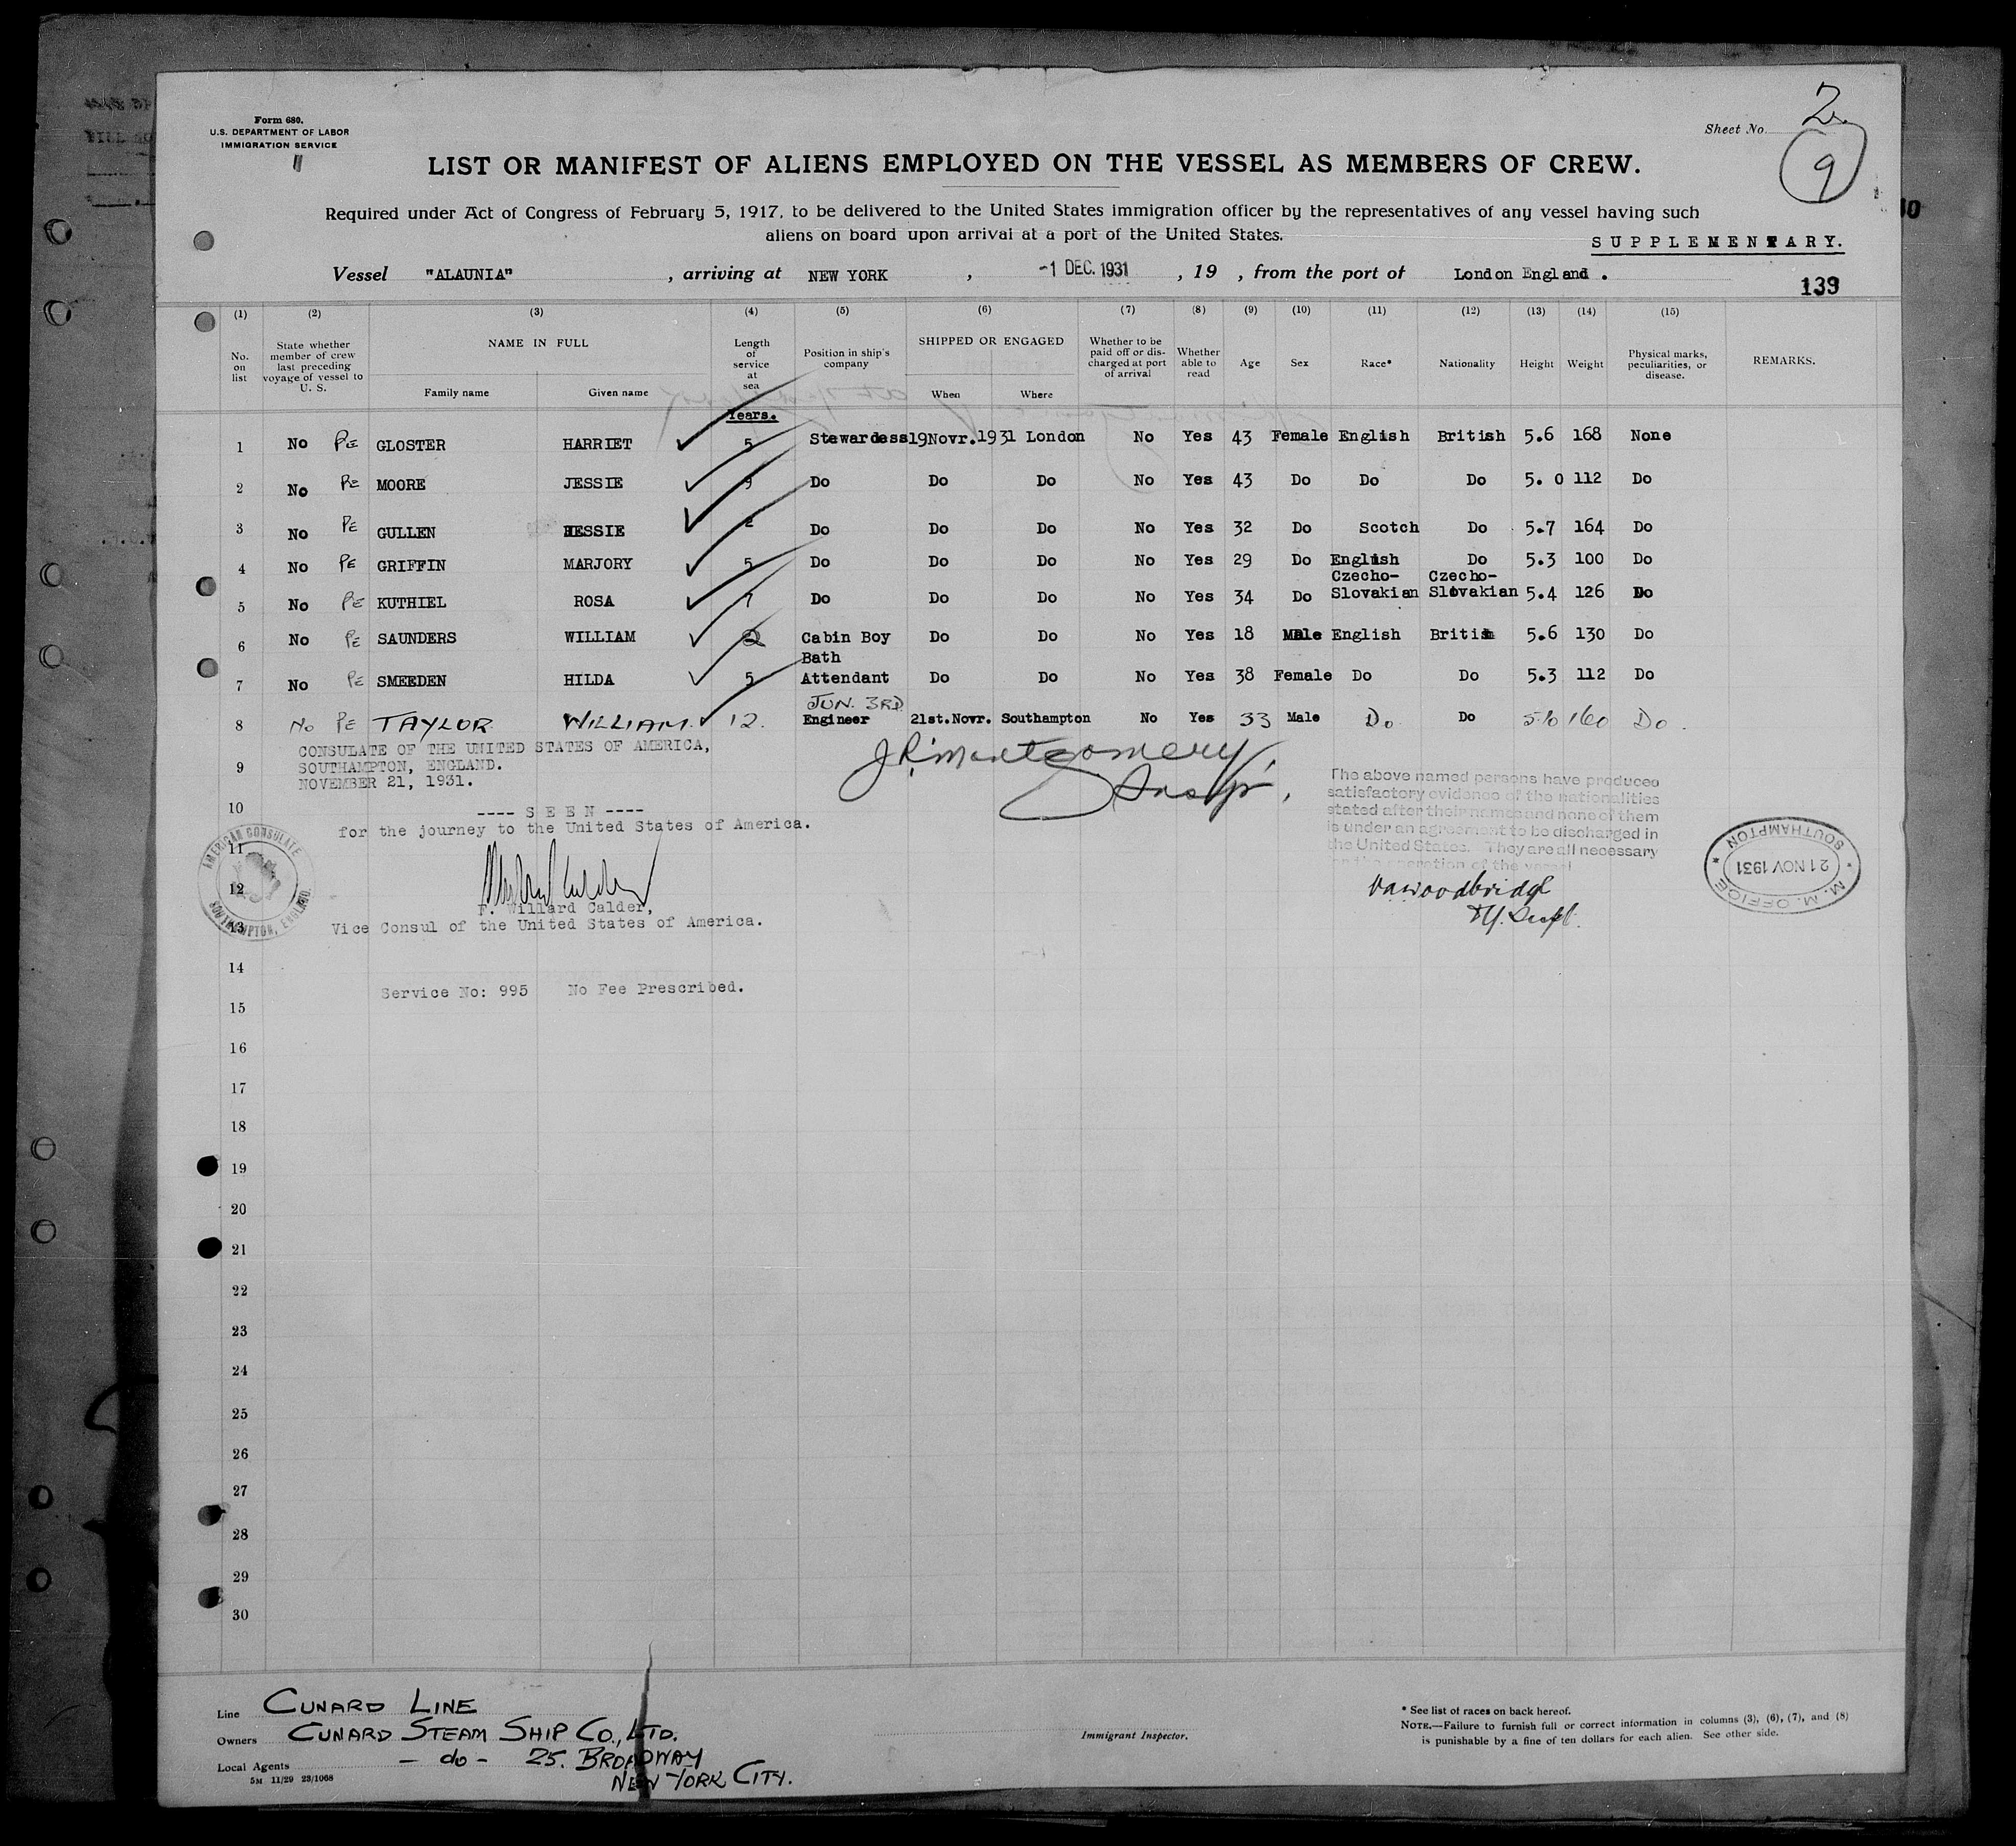 Form 680.
U.S. DEPARTMENT OF LABOR
IMMIGRATION SERVICE
Sheet No. 2.
9
LIST OR MANIFEST OF ALIENS EMPLOYED ON THE VESSEL AS MEMBERS OF CREW.
Required under Act of Congress of February 5, 1917, to be delivered to the United States immigration officer by the representatives of any vessel having such
aliens on board upon arrival at a port of the United States.
SUPPLEMENTARY.
Vessel "ALAUNIA" , arriving at NEW YORK , -1 DEC. 1931 , 19 , from the port of London England .
139
(1) (2) (3) (4) (5) (6) (7) (8) (9) (10) (11) (12) (13) (14) (15)
No. on list
State whether member of crew last preceding voyage of vessel to U. S.
NAME IN FULL
Family name Given name
Length of service at sea
Position in ship's company
SHIPPED OR ENGAGED
When Where
Whether to be paid off or discharged at port of arrival
Whether able to read
Age Sex Race* Nationality Height Weight
Physical marks, peculiarities, or disease.
REMARKS.
Years.
1 No PE GLOSTER HARRIET 5 Stewardess 19Novr.1931 London No Yes 43 Female English British 5.6 168 None
2 No PE MOORE JESSIE Do Do Do No Yes 43 Do Do Do 5. 0 112 Do
3 No PE GULLEN 2 Do Do Do No Yes 32 Do Scotch Do 5.7 164 Do
4 No PE GRIFFIN MARJORY 5 Do Do Do No Yes 29 Do English Do 5.3 100 Do
5 No PE KUTHIEL ROSA 7 Do Do Do No Yes 34 Do Czecho-Slovakian Czecho-Slovakian 5.4 126 Do
6 No PE SAUNDERS WILLIAM 2 Cabin Boy Do Do No Yes 18 Male English British 5.6 130 Do
7 No PE SMEEDEN HILDA 5 Bath Attendant Do Do No Yes 38 Female Do Do 5.3 112 Do
8 No PE TAYLOR WILLIAM. 12. JUN. 3RD Engineer 21st.Novr. Southampton No Yes 33 Male Do Do 5.10 160 Do.
CONSULATE OF THE UNITED STATES OF AMERICA,
9 SOUTHAMPTON, ENGLAND.
NOVEMBER 21, 1931.
J R Montgomery,
Insp,
10 ---- S E E N ----
for the journey to the United States of America.
The above named persons have produced
satisfactory evidence of the nationalities
stated after their names and none of them
is under an agreement to be discharged in
the United States. They are all necessary
for the operation of the vessel
11
12
13
AMERICAN CONSULATE
SOUTHAMPTON, ENGLAND.
F. Willard Calder,
Vice Consul of the United States of America.
Woodbridge
M. OFFICE
21 NOV 1931
SOUTHAMPTON
14
Service No: 995 No Fee Prescribed.
15
16
17
18
19
20
21
22
23
24
25
26
27
28
29
30
Line CUNARD LINE
Owners CUNARD STEAM SHIP CO., LTD.
Local Agents - do - 25. BROADWAY
NEW YORK CITY.
5M 11/29 23/1068
Immigrant Inspector.
* See list of races on back hereof.
NOTE.—Failure to furnish full or correct information in columns (3), (6), (7), and (8)
is punishable by a fine of ten dollars for each alien. See other side.